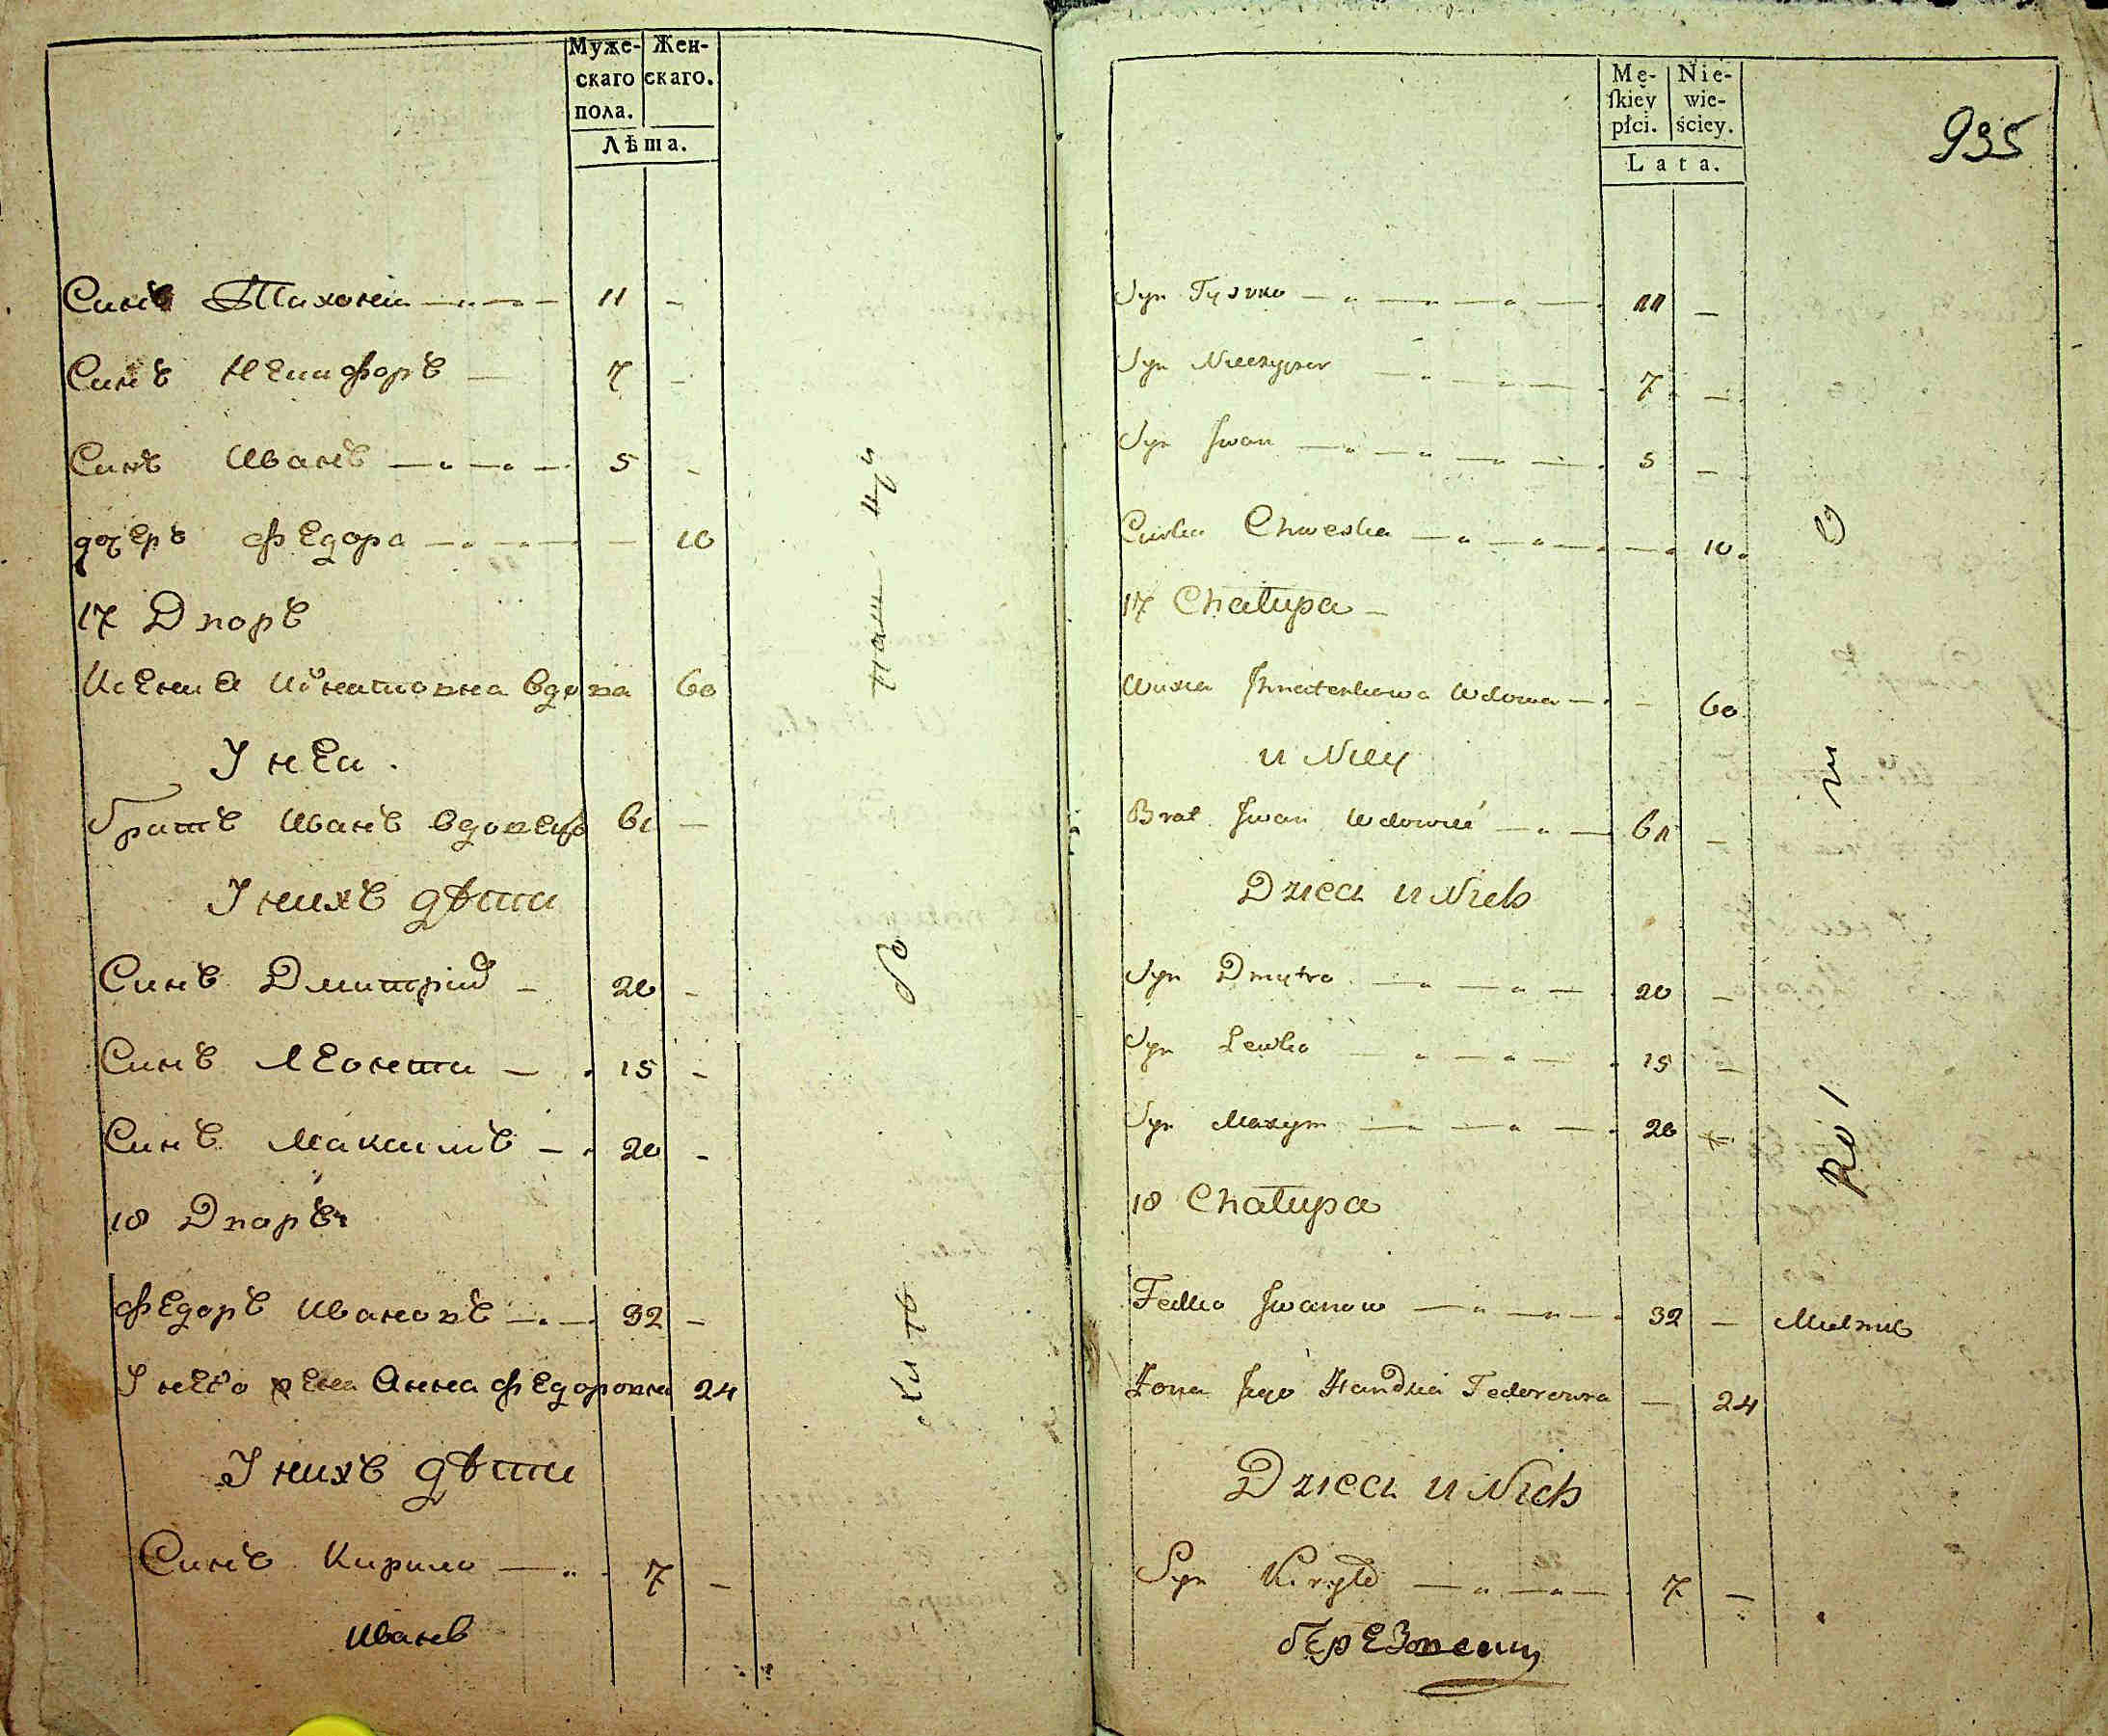 Муже-
скаго
пола.
Жен-
скаго.
Лѣта.
Синъ Тихонъ 11 -
Синъ Никифоръ 7 -
Синъ Иванъ 5 -
дочеръ Федора - 10
17 Дворъ
Ксения Игнатовна вдова 60
У неи.
братъ Иванъ вдовецъ 61 -
У нихъ дѣти
Синъ Дмитрий 20 -
Синъ Леонти 15 -
Синъ Максимъ 20 -
18 Дворъ
Федоръ Ивановъ 32 -
У него жена Анна Федоровна 24
У нихъ дѣти
Синъ Кирило 7 -
Иванъ
Mę-
skiey
płci.
Nie-
wie-
ściey.
Lata.
935
Syn 11 -
Syn Nieczypor 7 -
Syn Jwan 5 -
Curka Chweska - 10
17 Chałupa
Jhnatenkowa Wdowa - 60
u Niey
Brat Jwan Wdowiec 61 -
Dzieci u Nich
Syn Dmytro 20 -
Syn Lewko 15 -
Syn Maxym 20
18 Chałupa
Fedko Jwanow 32 - Mielnik
Żona Jego Handzia Fedorowna - 24
Dzieci u Nich
Syn Kiryło 7 -